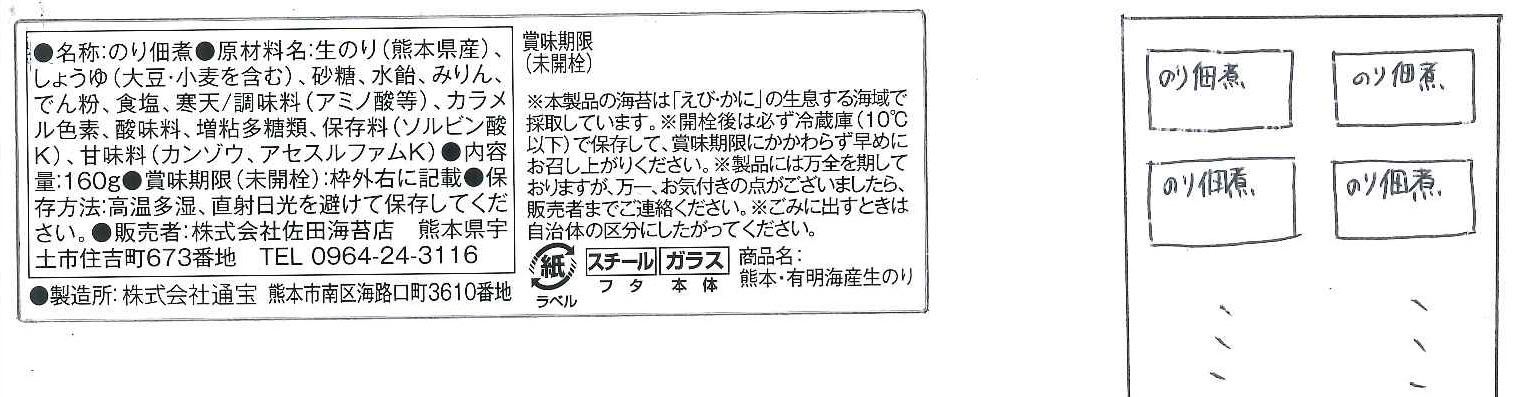 ●名称:のり佃煮●原材料名:生のり(熊本県産)、
しょうゆ(大豆・小麦を含む)、砂糖、水飴、みりん、
でん粉、食塩、寒天/調味料(アミノ酸等)、カラメ
ル色素、酸味料、増粘多糖類、保存料(ソルビン酸
K)、甘味料(カンゾウ、アセスルファムK)●内容
量:160g●賞味期限(未開栓):枠外右に記載●保
存方法:高温多湿、直射日光を避けて保存してくだ
さい。●販売者:株式会社佐田海苔店 熊本県宇
土市住吉町673番地 TEL 0964-24-3116
●製造所:株式会社通宝 熊本市南区海路口町3610番地
賞味期限
(未開栓)
※本製品の海苔は「えび・かに」の生息する海域で
採取しています。※開栓後は必ず冷蔵庫(10℃
以下)で保存して、賞味期限にかかわらず早めに
お召し上がりください。※製品には万全を期して
おりますが、万一、お気付きの点がございましたら、
販売者までご連絡ください。※ごみに出すときは
自治体の区分にしたがってください。
紙
ラベル
スチール
フタ
ガラス
本体
商品名:
熊本・有明海産生のり
のり佃煮
のり佃煮
のり佃煮
のり佃煮